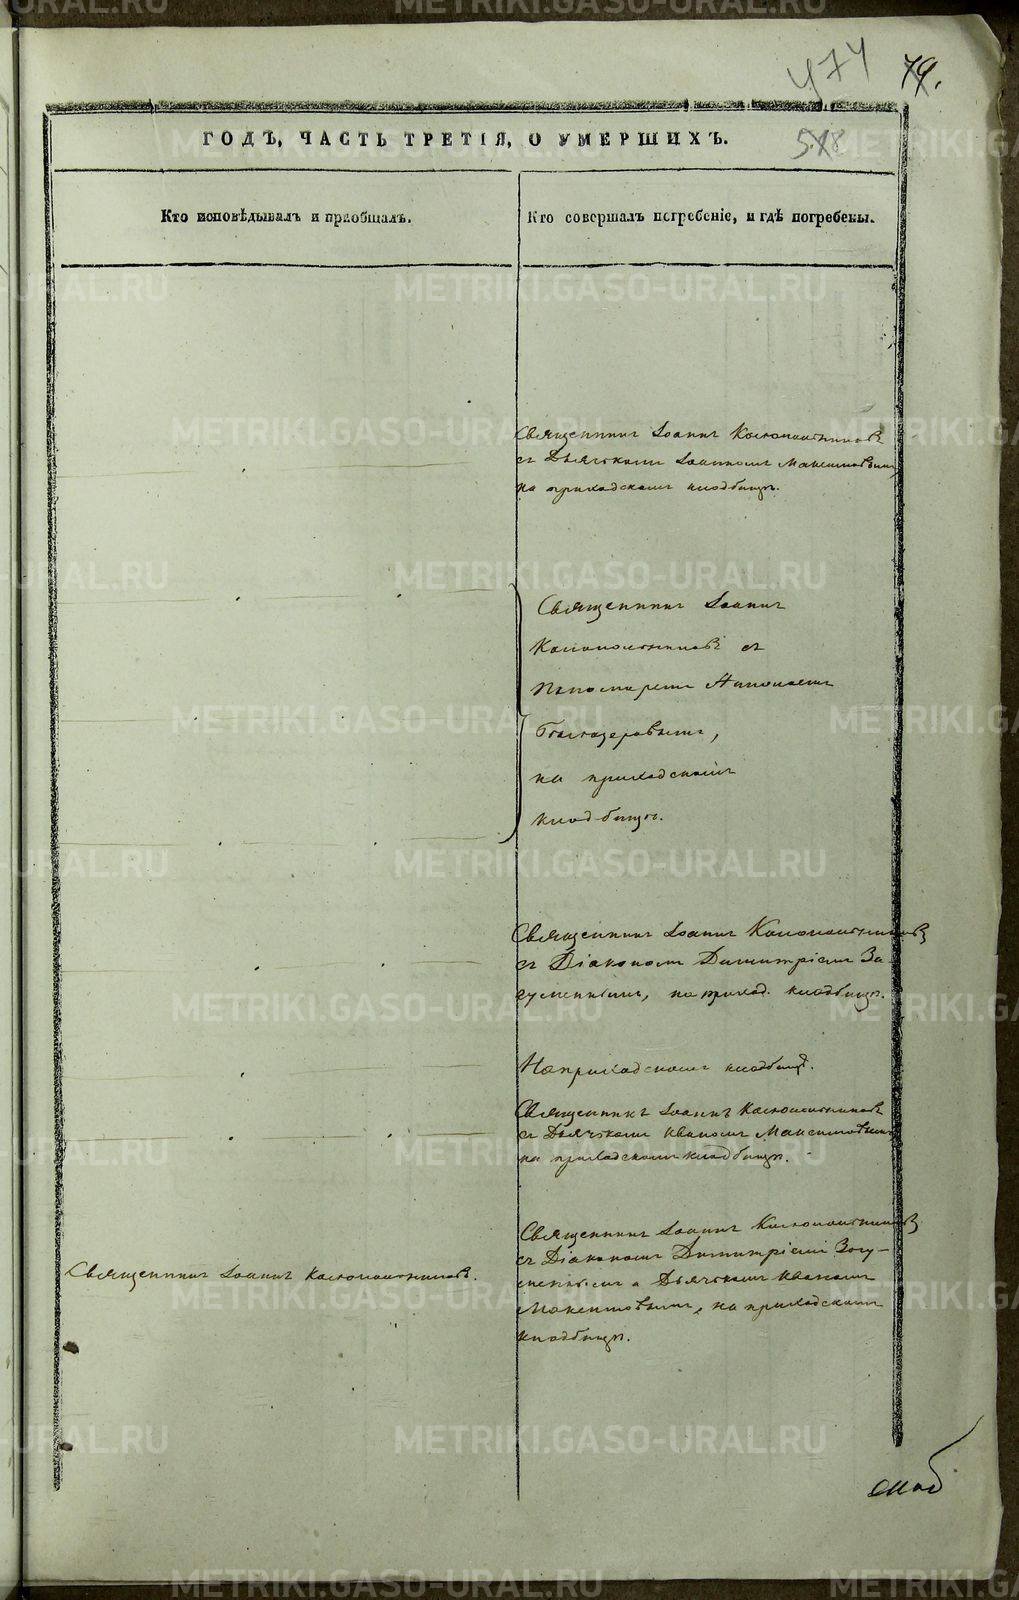 474
79.
518
ГОДЪ, ЧАСТЬ ТРЕТІЯ, О УМЕРШИХЪ.
Кто исповѣдывалъ и пріобщалъ.
Кто совершалъ погребеніе, и гдѣ погребены.
Священникъ Іоаннъ Колокольниковъ
съ Дьячкомъ Іоанномъ Максимовымъ,
на приходскомъ кладбищѣ.
Священникъ Іоаннъ
Колокольниковъ съ
Пономаремъ Николаемъ
на приходскомъ
кладбищѣ.
Священникъ Іоаннъ Колокольниковъ
съ Діакономъ Димитріемъ За
гуменнымъ, на приход. кладбищѣ.
На приходскомъ кладбищѣ.
Священникъ Іоаннъ Колокольниковъ
съ Дьячкомъ Иваномъ Максимовымъ
на приходскомъ кладбищѣ.
Священникъ Іоаннъ Колокольниковъ
съ Діакономъ Димитріемъ Загу-
меннымъ и Дьячкомъ Иваномъ
Максимовымъ, на приходскомъ
кладбищѣ.
Священникъ Іоаннъ Колокольниковъ.
METRIKI.GASO-URAL.RU